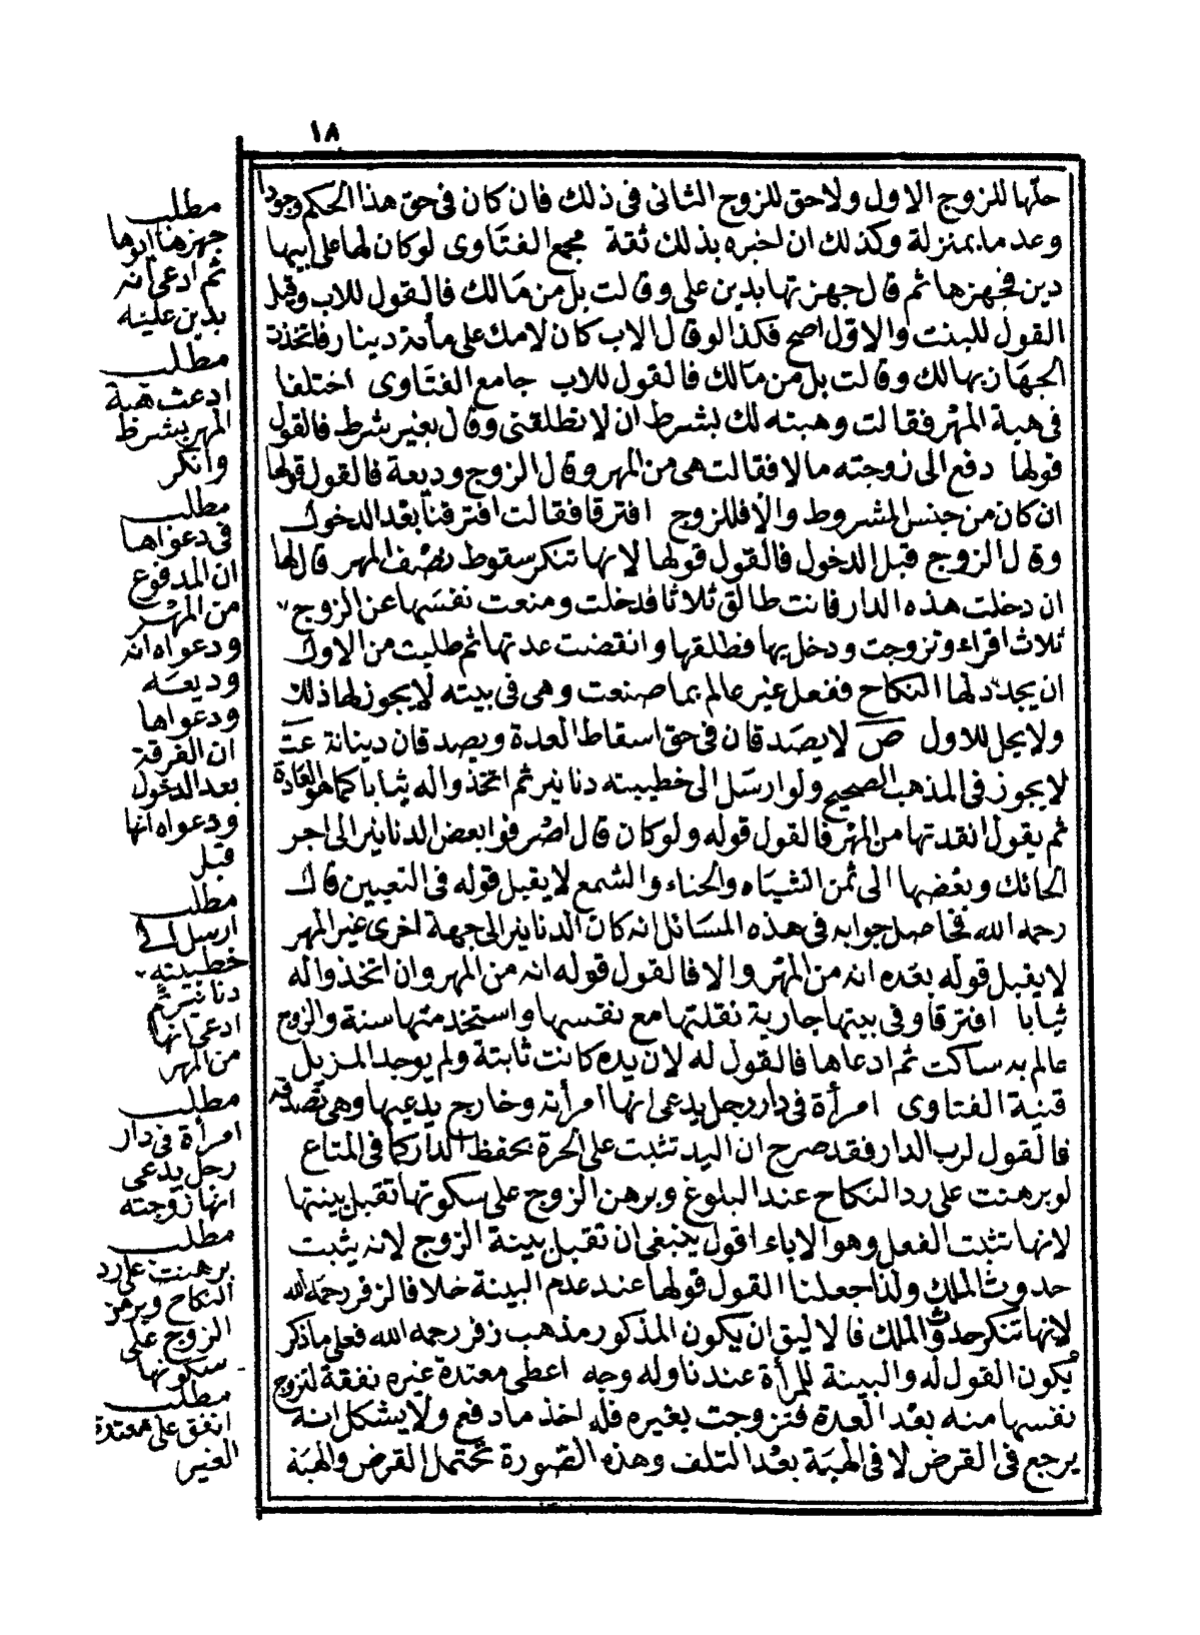 ١٨
حلها للزوج الاول ولاحق للزوج الثانى فى ذلك فان كان فى حق هذا الحكم وجودا
وعدما بمنزلة وكذلك ان اخبره بذلك ثقة مجمع الفتاوى لوكان لها على ابيها
دين فجهزها ثم قال جهزتها بدين على وقالت بل من مالك فالقول للاب وقيل
القول للبنت والاول اصح فكذا لوقال الاب كان لامك على مأة دينار فاتخذت
الجهاز بها لك وقالت بل من مالك فالقول للاب جامع الفتاوى اختلفا
فى هبة المهر فقالت وهبته لك بشرط ان لا تطلقنى وقال بغير شرط فالقول
قولها دفع الى زوجته مالا فقالت هى من المهر وقال الزوج وديعة فالقول قولها
ان كان من جنس المشروط والا فللزوج افترقا فقالت افترقنا بعد الدخول
وقال الزوج قبل الدخول فالقول قولها لانها تنكر سقوط نصف المهر قال لها
ان دخلت هذه الدار فانت طالق ثلاثا فدخلت ومنعت نفسها عن الزوج
ثلاث اقراء وتزوجت ودخل بها فطلقها وانقضت عدتها ثم طلبت من الاول
ان يجدد لها النكاح ففعل غير عالم بما صنعت وهى فى بيته لا يجوز لها ذلك
ولا يحل للاول ص لا يصدقان فى حق اسقاط العدة ويصدقان ديانة عت
لا يجوز فى المذهب الصحيح ولو ارسل الى خطيبته دنانير ثم اتخذوا له ثيابا كما هو العادة
ثم يقول انقدتها من المهر فالقول قوله ولو كان قال اصرفوا بعض الدنانير الى اجر
الحائك وبعضها الى ثمن الشياه والحناء والشمع لا يقبل قوله فى التعيين قال
رحمه الله فحاصل جوابه فى هذه المسائل انه كان الدنانير الى جهة اخرى غير المهر
لا يقبل قوله بعده انه من المهر والا فالقول قوله انه من المهر وان اتخذوا له
ثيابا افترقا وفى بيتها جارية نقلتها مع نفسها واستخدمتها سنة والزوج
عالم به ساكت ثم ادعاها فالقول له لان يده كانت ثابتة ولم يوجد المزيل
قنية الفتاوى امرأة فى دار رجل يدعى انها امرأته وخارج يدعيها وهى تصدقه
فالقول لرب الدار فقد صرح ان اليد تثبت على الحرة بحفظ الدار كما فى المتاع
لو برهنت على رد النكاح عند البلوغ وبرهن الزوج على سكوتها تقبل بينتها
لانها تثبت الفعل وهو الاباء اقول ينبغى ان تقبل بينة الزوج لانه يثبت
حدوث الملك ولذا جعلنا القول قولها عند عدم البينة خلافا لزفر رحمه الله
لانها تنكر حدوث الملك فالاليق ان يكون المذكور مذهب زفر رحمه الله فعلى ما ذكر
يكون القول له والبينة للمرأة عندنا وله وجه اعطى معتدة غيره نفقة لتزوج
نفسها منه بعد العدة فتزوجت بغيره فله اخذ ما دفع ولا يشكل انه
يرجع فى القرض لا فى الهبة بعد التلف وهذه الصورة تحتمل القرض والهبة
مطلب
جهزها ابوها
ثم ادعى انه
بدين عليه
مطلب
ادعت هبة
المهر بشرط
وانكر
مطلب
فى دعواها
ان المدفوع
من المهر
ودعواه انه
وديعه
ودعواها
ان الفرقة
بعد الدخول
ودعواه انها
قبل
مطلب
ارسل الى
خطيبته
دنانير ثم
ادعى انها
من المهر
مطلب
امرأة فى دار
رجل يدعى
انها زوجته
مطلب
برهنت على رد
النكاح وبرهن
الزوج على
سكوتها
مطلب
انفق على معتدة
الغير